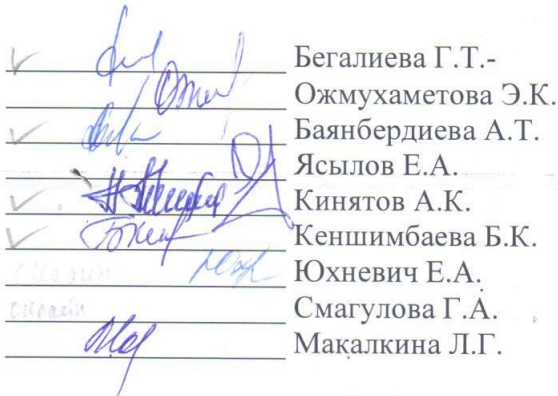 Бегалиева Г.Т.-
Ожмухаметова Э.К.
Баянбердиева А.Т.
Ясылов Е.А.
Кинятов А.К.
Кеншимбаева Б.К.
онлайн Юхневич Е.А.
онлайн Смагулова Г.А.
Макалкина Л.Г.